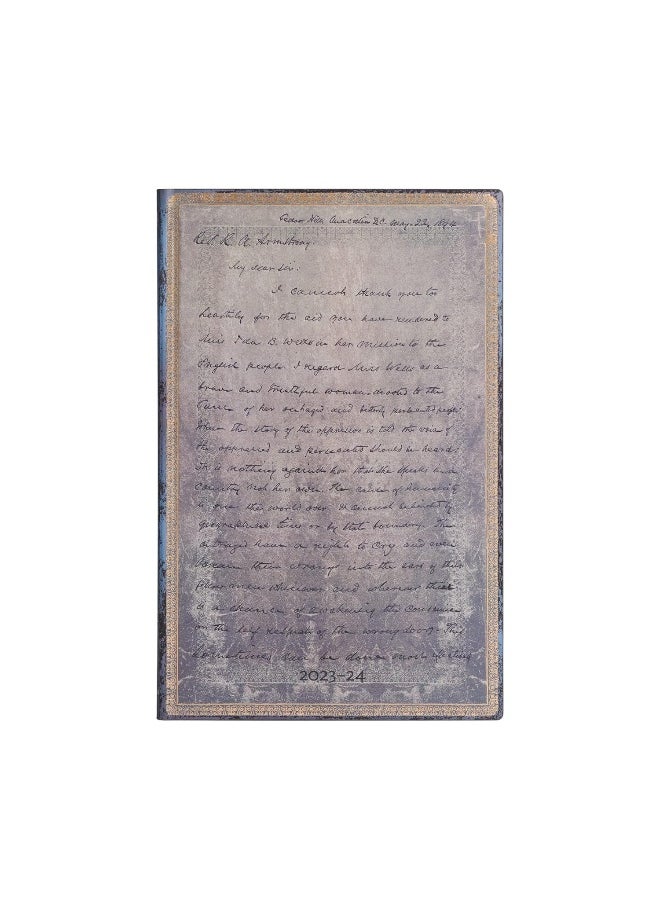 Cedar Hill Anacostia D.C. May. 22, 1894
Rev. C. A. Armstrong.
My dear Sir:
I cannot thank you too
heartily for the aid you have rendered to
Miss Ida B. Wells in her mission to the
English people. I regard Miss Wells as a
brave and truthful woman devoted to the
cause of her outraged and bitterly persecuted people.
When the story of the oppressor is told the voice of
the oppressed and persecuted should be heard.
It is nothing against her that she speaks
country not her own. The cause of humanity
is one the world over. It cannot
geographical lines or by state boundary. The
outraged have a right to cry and even
scream their wrongs into the ears of their
fellow men wherever and whenever there
is a chance of awakening the conscience
or the self respect of the wrong doer. This
sometimes can be done more
2023–24